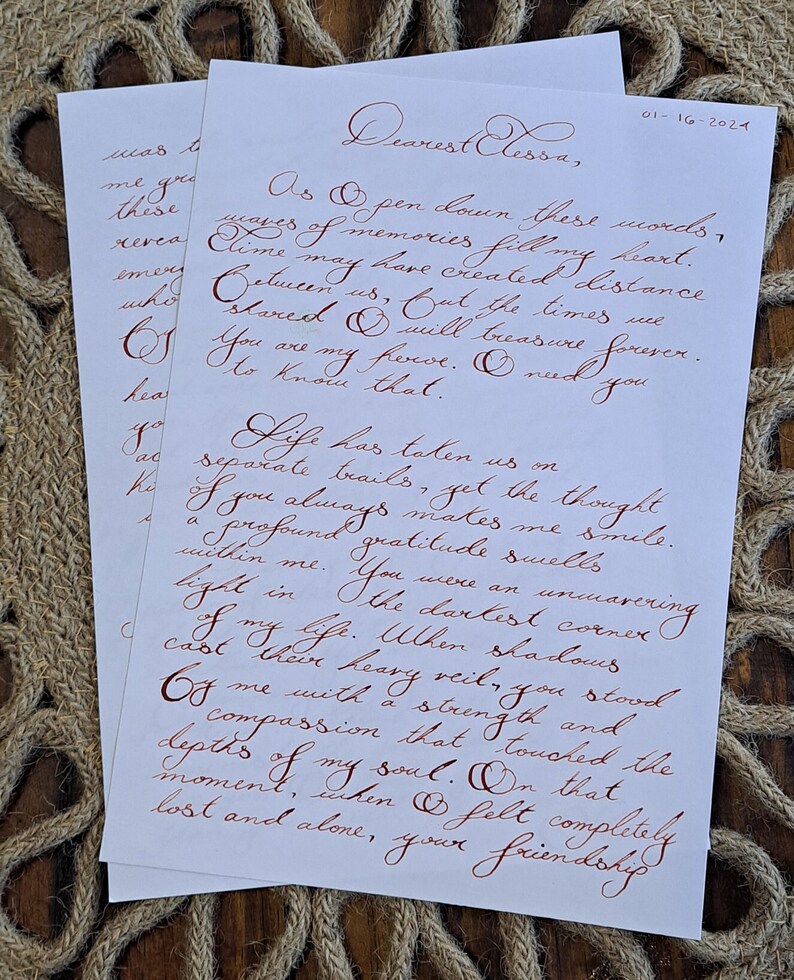 01-16-2024
Dearest Elessa,
As I pen down these words,
waves of memories fill my heart.
Time may have created distance
between us, but the times we
shared I will treasure forever.
You are my heroe. I need you
to know that.
Life has taken us on
separate trails, yet the thought
of you always makes me smile.
a profound gratitude swells
within me. You were an unwavering
light in the darkest corner
of my life. When shadows
cast their heavy veil, you stood
by me with a strength and
compassion that touched the
depths of my soul. In that
moment, when I felt completely
lost and alone, your friendship
was
me
these